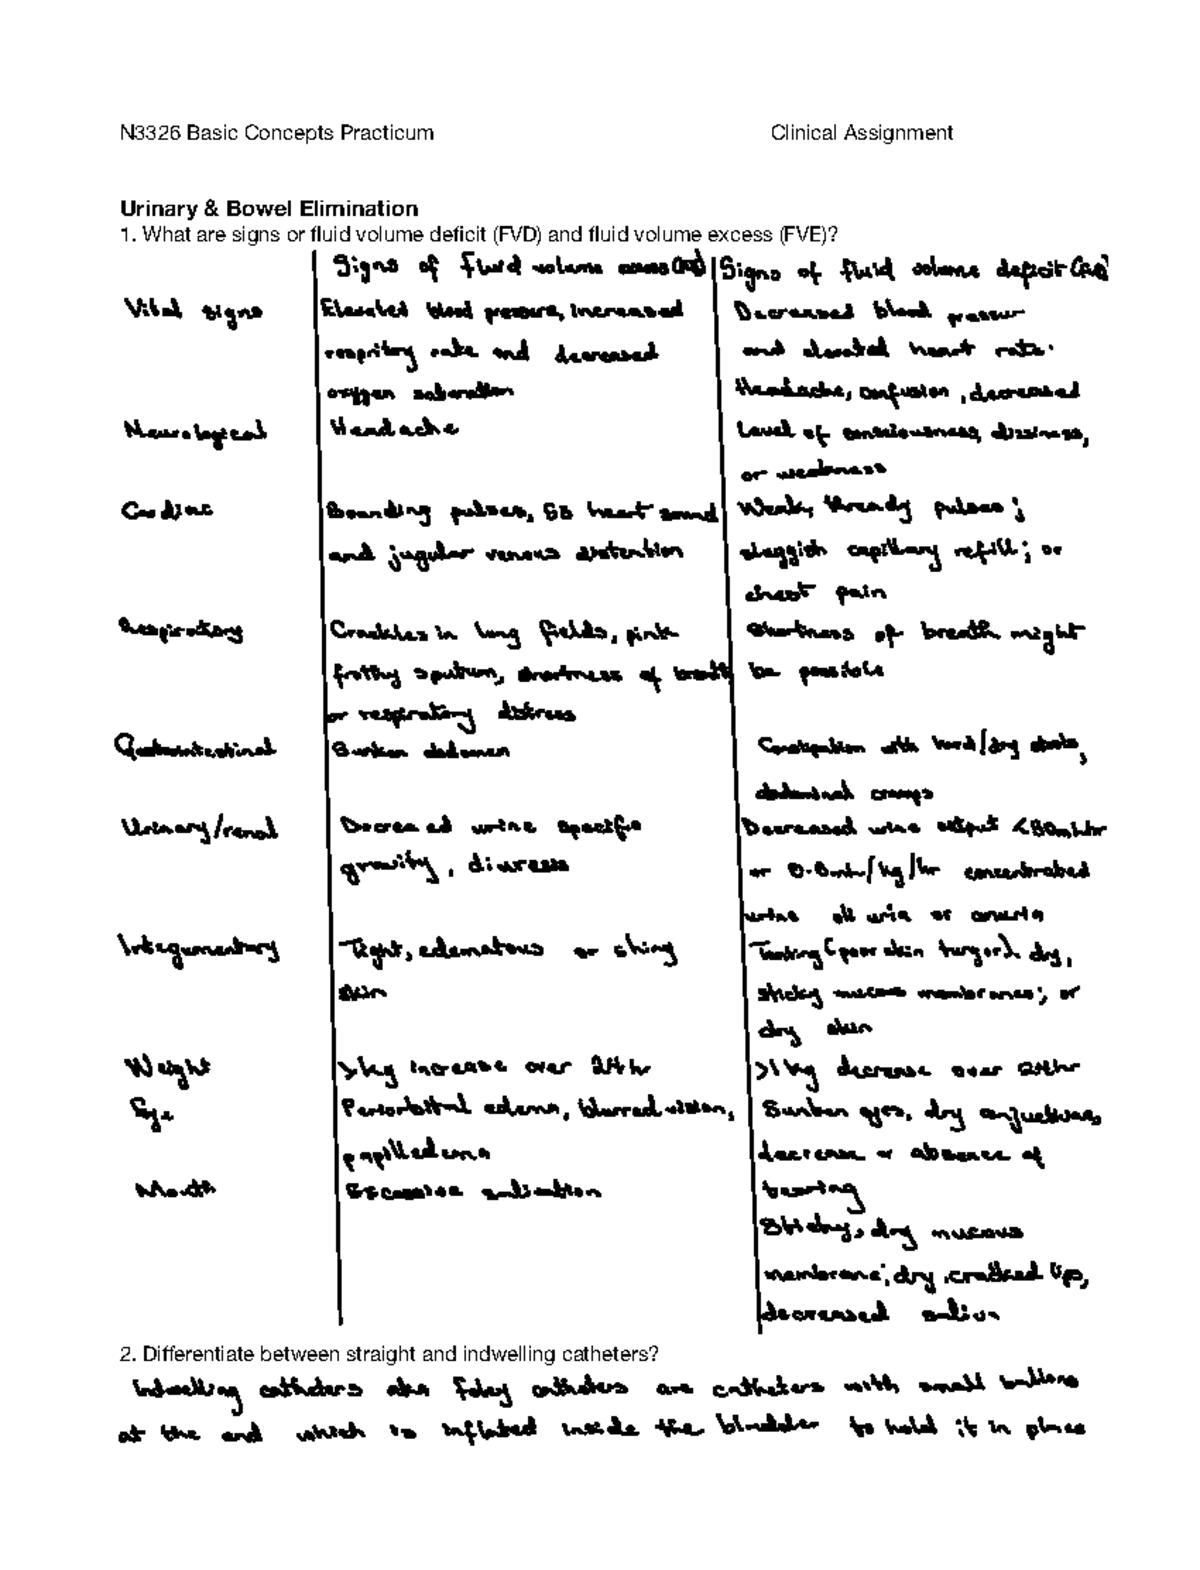 N3326 Basic Concepts Practicum Clinical Assignment
Urinary & Bowel Elimination
1. What are signs or fluid volume deficit (FVD) and fluid volume excess (FVE)?
Signs of fluid volume Signs of fluid volume deficit
Vital signs Elevated blood pressure, increased Decreased blood pressur
respritory rate and decreased and elevated heart rate.
oxygen saturation Headache, confusion, decreased
Neurological Headache Level of consciousness, dizziness,
or weakness
Cardiac Bounding pulses, S3 heart sound Weak, thready pulses;
and jugular venous distention sluggish capillary refill; or
chest pain
Respiratory Crackles in lung fields, pink Shortness of breath might
frothy sputum, shortness of breath be possible
or respiratory distress
Gastrointestinal Sunken abdomen Constipation with hard/dry stools,
abdominal cramps
Urinary/renal Decreased urine specific Decreased urine output <30mL/hr
gravity, diuresis or kg/hr concentrated
urine or anuria
Integumentary Tight, edematous or shiny Tenting (poor skin turgor), dry,
skin sticky mucous membranes; or
dry skin
Weight >1kg increase over 24hr >1kg decrease over 24hr
Eye Periorbital edema, blurred vision, Sunken eyes, dry conjuctivas,
papilledema decrease or absence of
Mouth Excessive salivation tearing
Sticky, dry mucous
membrane; dry, cracked lips,
decreased saliva
2. Differentiate between straight and indwelling catheters?
Indwelling catheters aka Foley catheters are catheters with small
at the end which is inflated inside the bladder to hold it in place